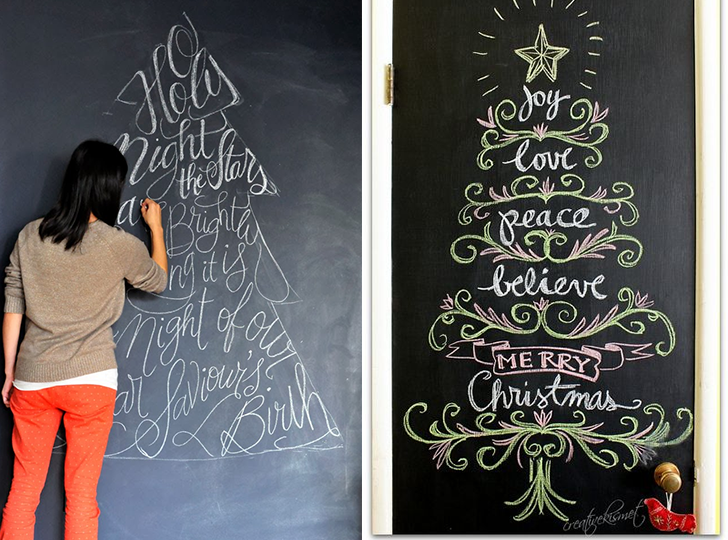 O
Holy
Night
the Stars
a Brightly
ng it is
Night of our
ar Saviour's
Birth
Joy
love
peace
believe
MERRY
Christmas
creativekismet